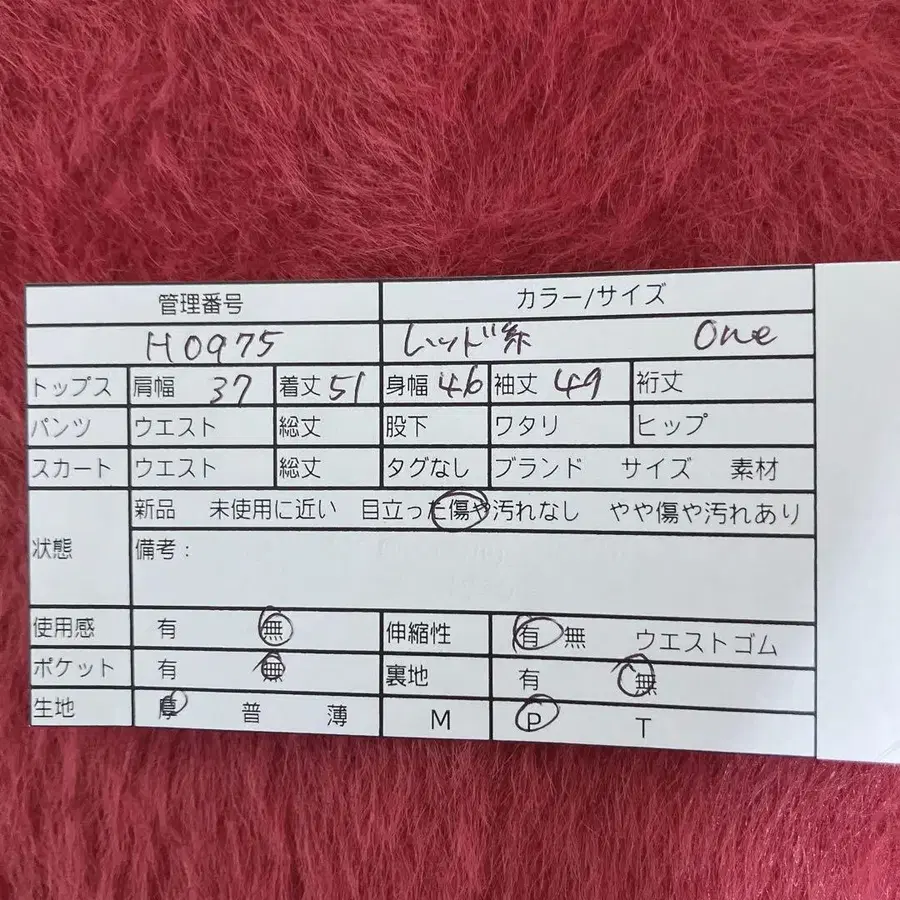 管理番号 カラー/サイズ
H0975 レッド系 One
トップス 肩幅 37 着丈 51 身幅 46 袖丈 49 裄丈
パンツ ウエスト 総丈 股下 ワタリ ヒップ
スカート ウエスト 総丈 タグなし ブランド サイズ 素材
状態 新品 未使用に近い 目立った傷や汚れなし やや傷や汚れあり
備考:
使用感 有 無 伸縮性 有 無 ウエストゴム
ポケット 有 無 裏地 有 無
生地 厚 普 薄 M P T